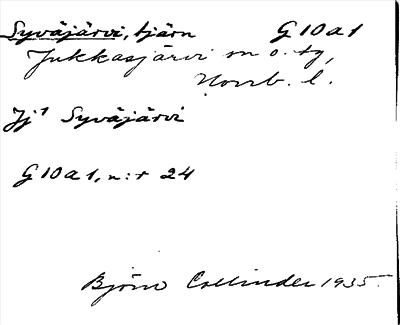 Syväjärvi, tjärn G 10 a 1
Jukkasjärvi sn o. tg,
Norrb. l.
Jj¹ Syväjärvi
G 10 a 1, n:r 24
Björn Collinder 1935.